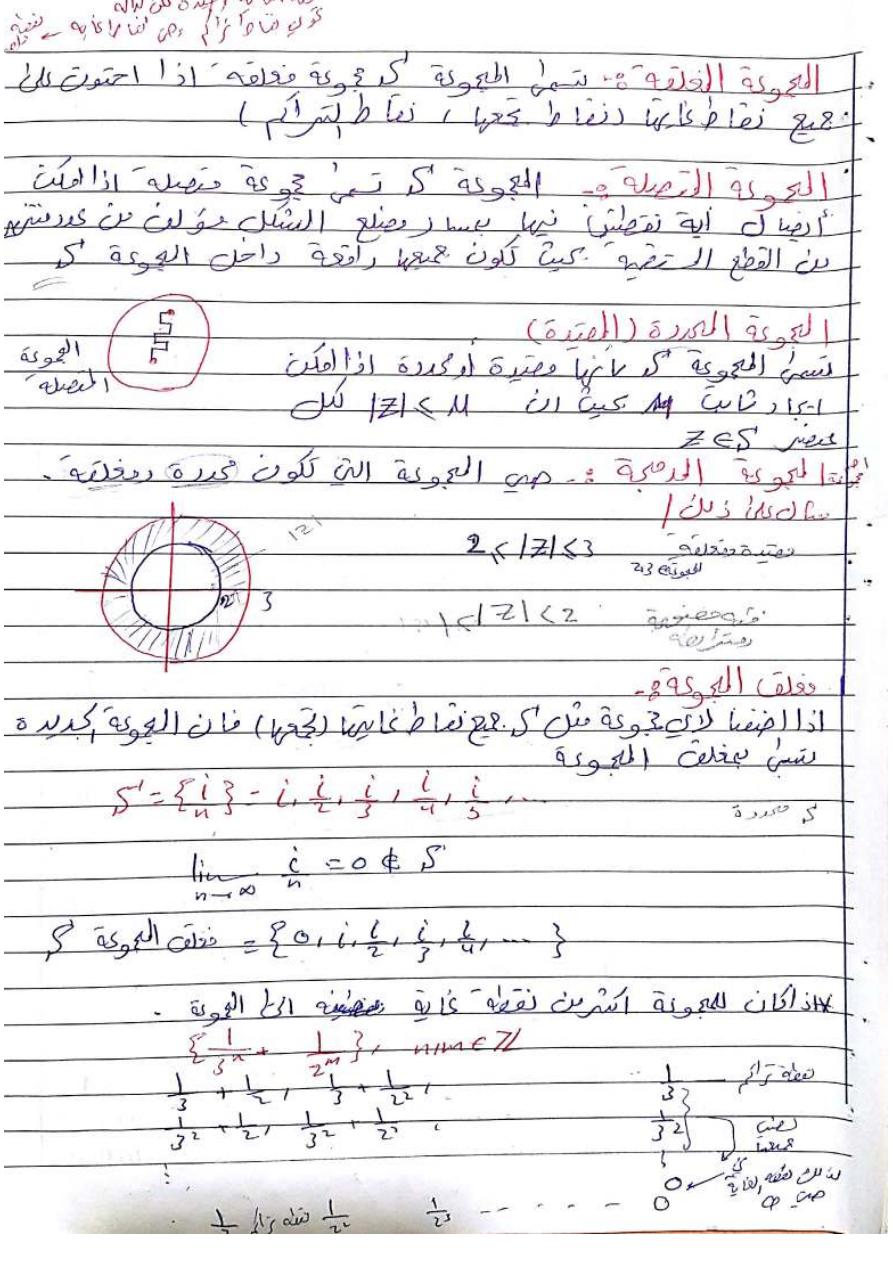 المجموعة المغلقة :- تسمى المجموعة S مجموعة مغلقة اذا احتوت على
جميع نقاط غايتها (نقاط تجمعها ، نقاط التراكم)
المجموعة المتصلة :- المجموعة S تسمى مجموعة متصلة اذا امكن
أيصال أية نقطتين فيها بمسار مضلع الشكل مؤلف من عدد منتهي
من القطع المستقيمة بحيث تكون جميعها واقعة داخل المجموعة S
المجموعة المحددة (المقيدة)
المجموعة
المتصلة
تسمى المجموعة S بأنها مقيدة أو محددة اذا امكن
ايجاد ثابت M بحيث ان |Z| < M لكل
عنصر Z ∈ S
المجموعة المدمجة :- هي المجموعة التي تكون محددة ومغلقة .
مثال على ذلك /
|2|
2 ≤ |Z| ≤ 3 مقيدة ومغلقة
2 3
1 < |Z| < 2
مغلق المجموعة :-
اذا اضفنا لأي مجموعة مثل S جميع نقاط غايتها (تجمعها) فان المجموعة الجديدة
تسمى بمغلق المجموعة
S = {i/n} = i, i/2, i/3, i/4, i/5, ...
S محددة
lim n→∞ i/n = 0 ∉ S
مغلق المجموعة S = {0, i, i/2, i/3, i/4, ...}
*اذا كان للمجموعة اكثر من نقطة غاية الى المجموعة .
{1/3^n + 1/2^m}, n,m ∈ Z
1/3 + 1/2 , 1/3 + 1/2² , 1/3 نقطة تراكم
1/3² + 1/2 , 1/3² + 1/2² , 1/3²
⋮ 0
0
1/2² 1/2³ - - - - - -